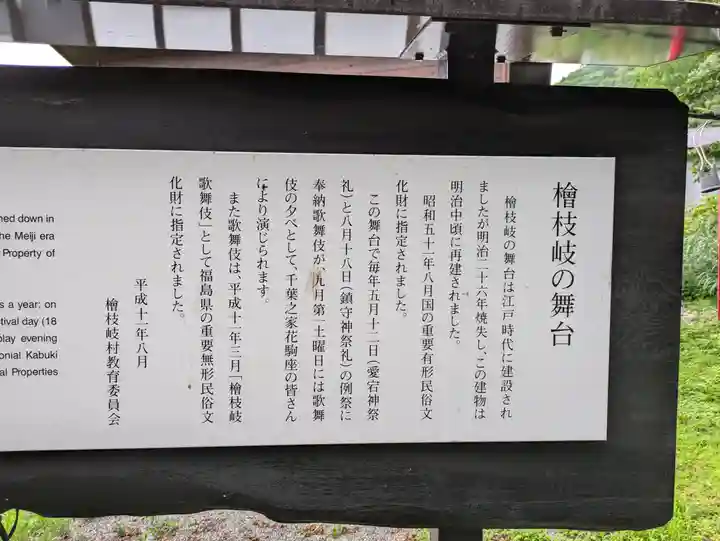 檜枝岐の舞台
檜枝岐の舞台は江戸時代に建設され
ましたが明治二十六年焼失し、この建物は
明治中頃に再建されました。
昭和五十一年八月国の重要有形民俗文
化財に指定されました。
この舞台で毎年五月十二日（愛宕神祭
礼）と八月十八日（鎮守神祭礼）の例祭に
奉納歌舞伎が、九月第一土曜日には歌舞
伎の夕べとして、千葉之家花駒座の皆さん
により演じられます。
また歌舞伎は、平成十一年三月「檜枝岐
歌舞伎」として福島県の重要無形民俗文
化財に指定されました。
平成十一年八月
檜枝岐村教育委員会
ned down in
he Meiji era
Property of
s a year: on
tival day (18
play evening
onial Kabuki
al Properties